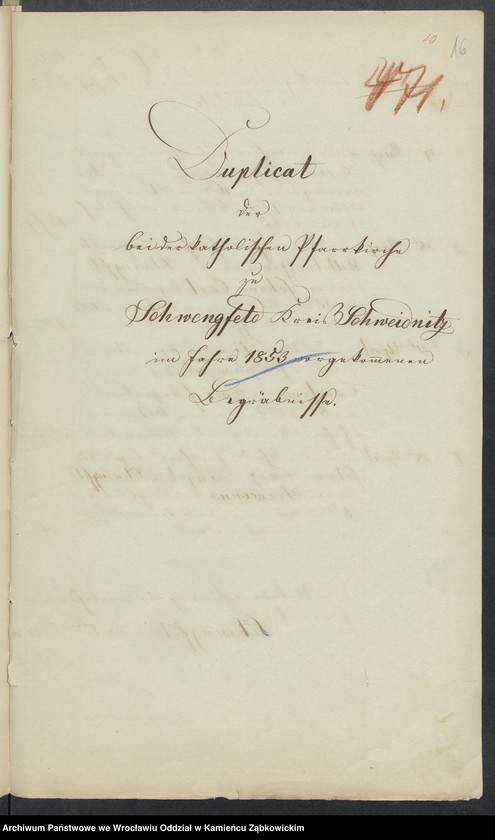 10
16
471.
Duplicat
der
bei der katholischen Pfarrkirche
zu
Schwengfeld Kreis Schweidnitz
im Jahre 1853 vorgekom̅enen
Begräbnisse.
Archiwum Państwowe we Wrocławiu Oddział w Kamieńcu Ząbkowickim